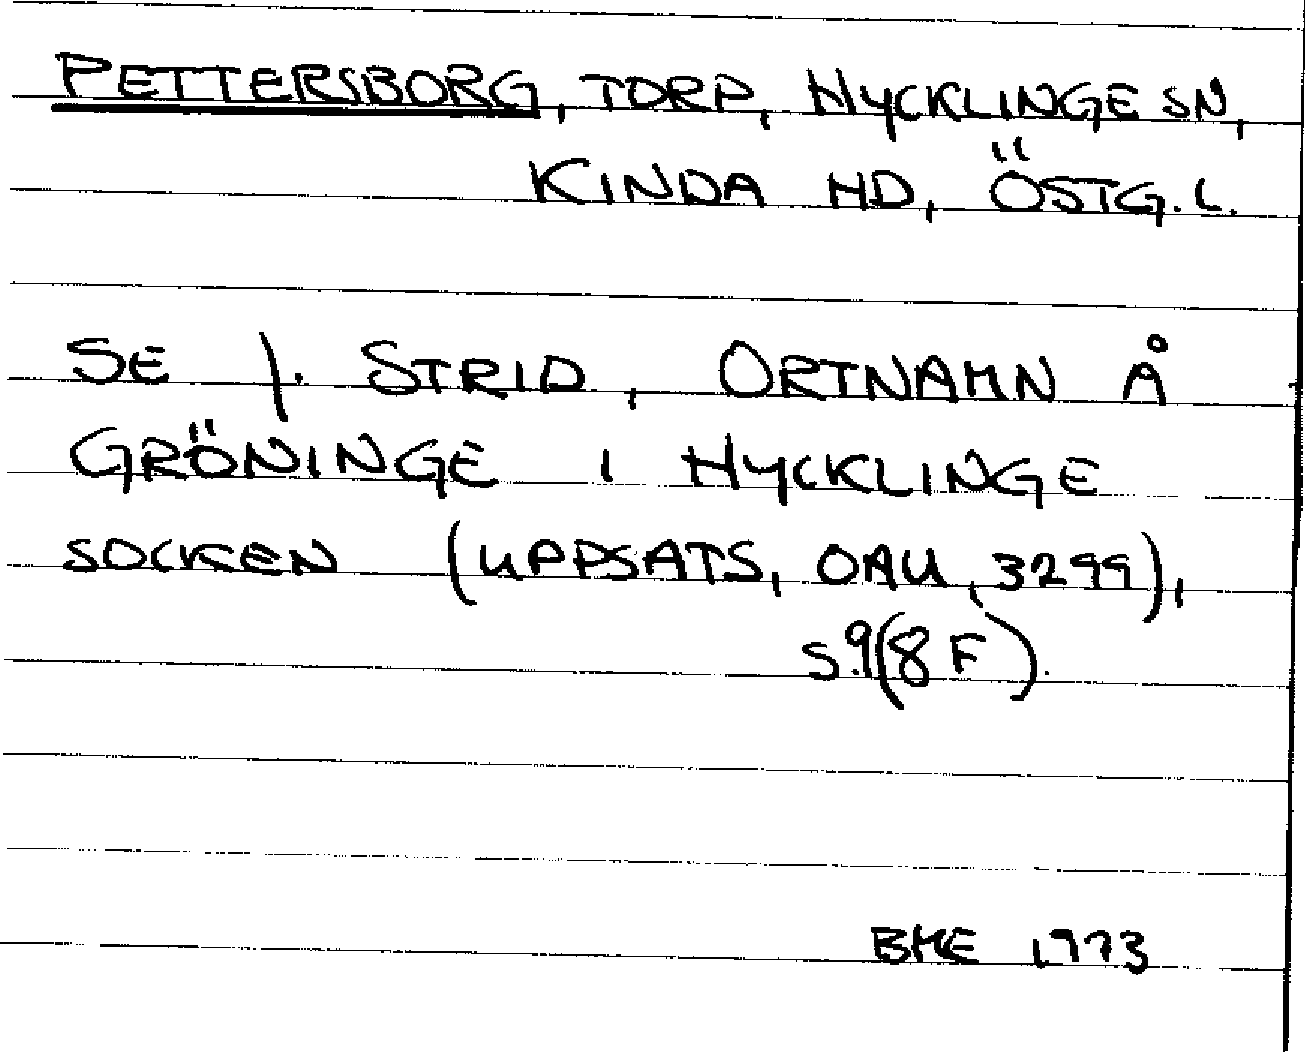 PETTERSBORG, TORP, HYCKLINGE SN,
KINDA HD, ÖSTG. L.
SE J. STRID, ORTNAMN Å
GRÖNINGE I HYCKLINGE
SOCKEN (UPPSATS, OAU, 3299),
S. 9 (8 F).
BME 1973